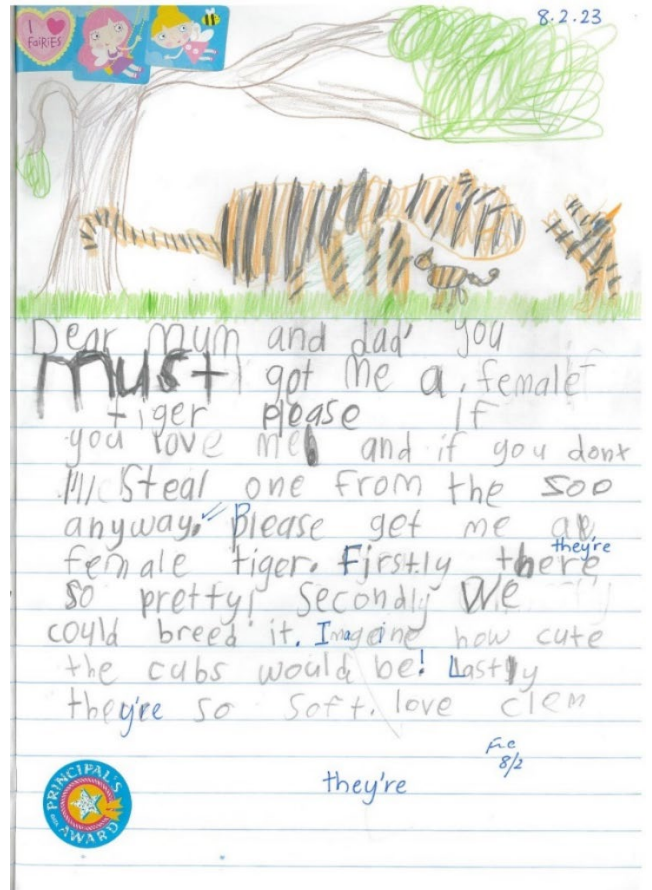 I ♥
FAiRiES
8.2.23
Dear mum and dad' you
must got me a female
tiger please If
you love me and if you dont
I'll Steal one from the soo
anyway. Please get me a
female tiger. Firstly there they're
so pretty! Secondly We
could breed it. Imageine how cute
the cubs would be! Lastly
they're so soft. love clem
8/2
they're
PRINCIPAL'S
AWARD